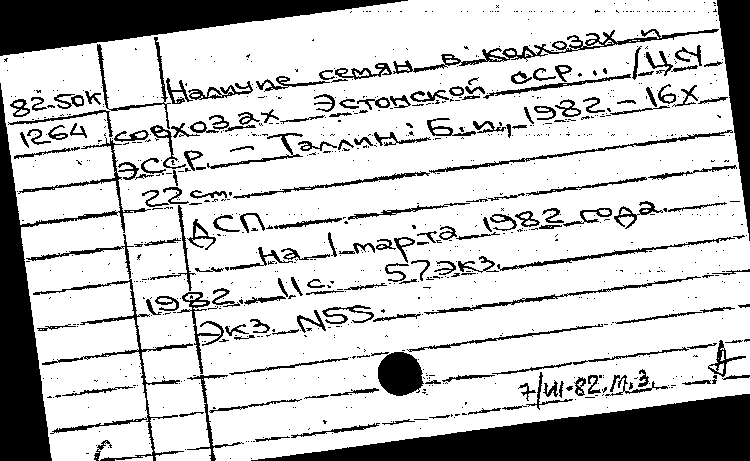 Наличие семян в колхозах и
82.50к
совхозах Эстонской ССР... /ЦСУ
1264
ЭССР. - Таллин: Б.и., 1982. - 16х
22 см.
ДСП
на 1 марта 1982 года
1982. 11с. 57экз.
Экз. N55.
7/VII-82. М.З.